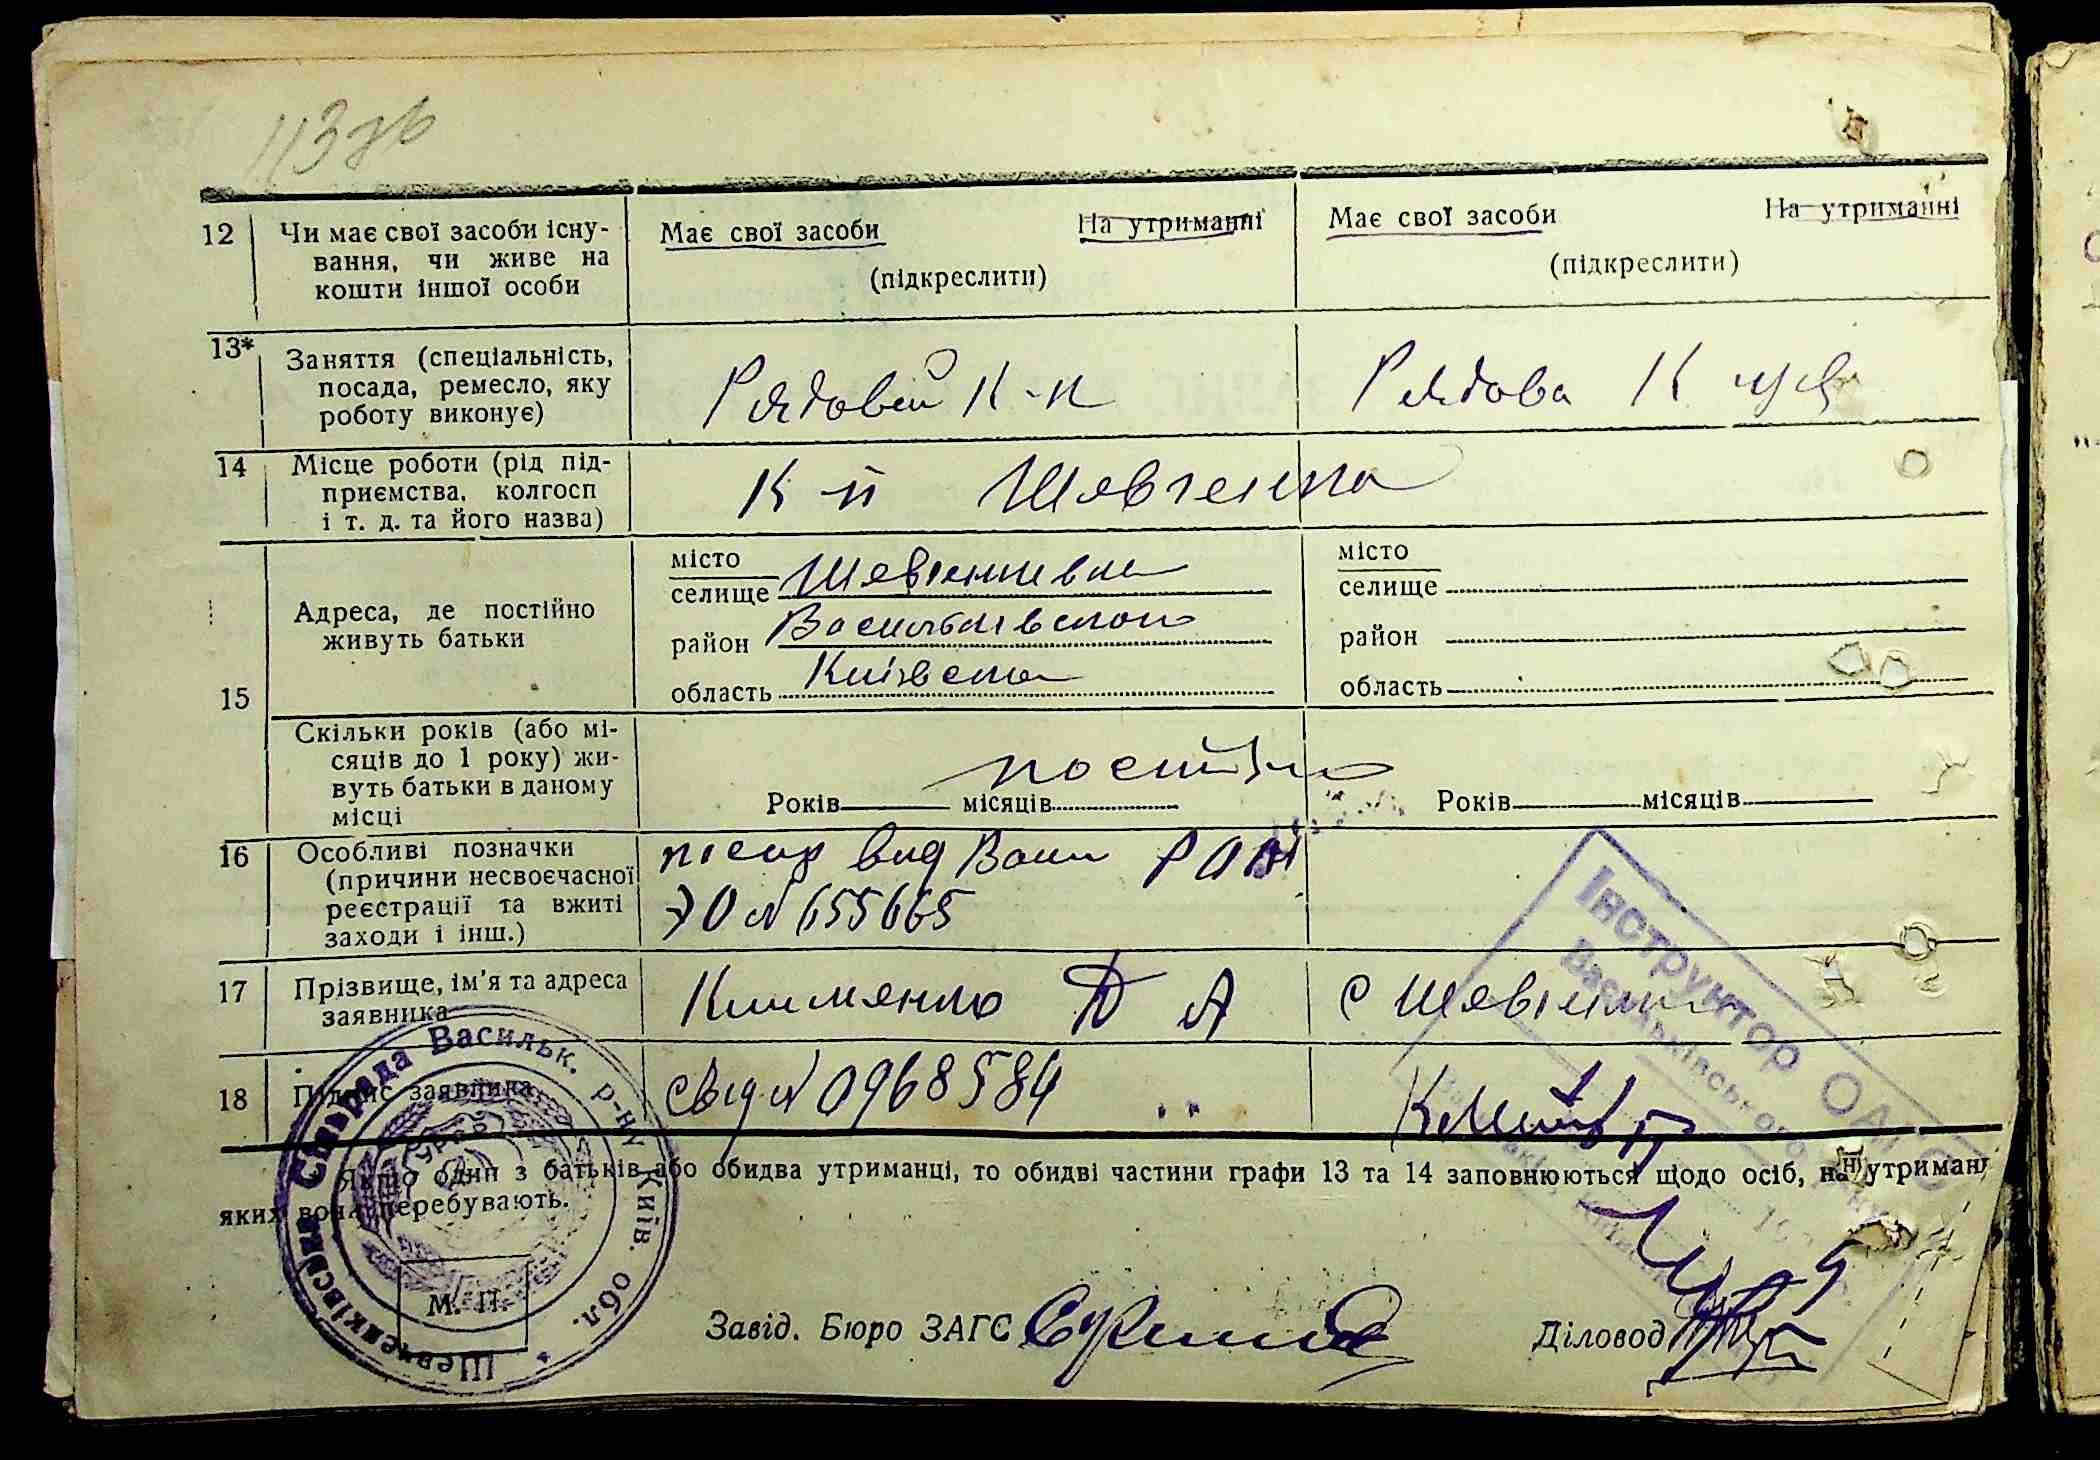 113 зв
12 Чи має свої засоби існу-
вання, чи живе на
кошти іншої особи
Має свої засоби На утриманні
(підкреслити)
Має свої засоби На утриманні
(підкреслити)
13* Заняття (спеціальність,
посада, ремесло, яку
роботу виконує)
Рядовий К-к
Рядова К
14 Місце роботи (рід під-
приємства, колгосп
і т. д. та його назва)
К-п Шевченка
15
Адреса, де постійно
живуть батьки
місто
селище Шевченківка
район Васильківського
область Київська
місто
селище
район
область
Скільки років (або мі-
сяців до 1 року) жи-
вуть батьки в даному
місці
постійно
Років місяців
Років місяців
16 Особливі позначки
(причини несвоєчасної
реєстрації та вжиті
заходи і інш.)
вид Вас
ЭО № 655665
17 Прізвище, ім'я та адреса
заявника
Клименко Д А
с Шевченк
18 Підпис заявника
свід № 0968584
Якщо один з батьків або обидва утриманці, то обидві частини графи 13 та 14 заповнюються щодо осіб, на утриман
яких вона перебувають.
М. П.
Завід. Бюро ЗАГС
Діловод
Шевченківська Сільрада Васильк. р-ну Київ. обл.
УРСР
Інструктор
Васильківського